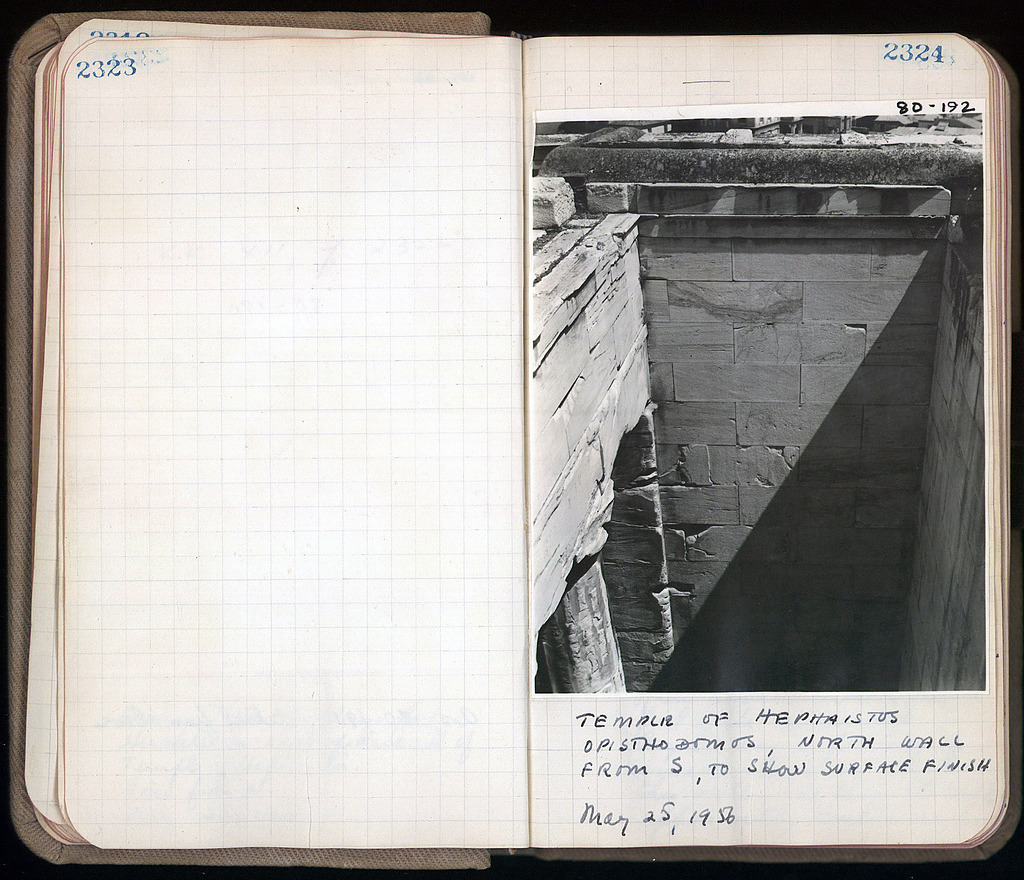 2323
2324
80-192
TEMPLE OF HEPHAISTOS
OPISTHODOMOS, NORTH WALL
FROM S, TO SHOW SURFACE FINISH
May 25, 1956